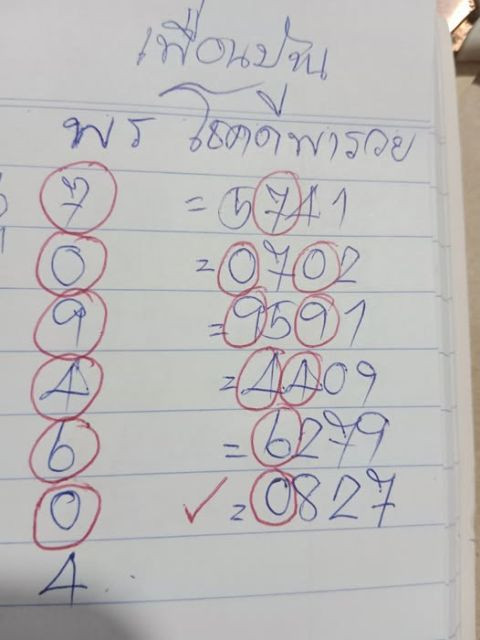 เพื่อนปัน
พร โชคดีพารวย
7 = 5741
0 = 0702
9 = 9591
4 = 4409
6 = 6279
0 ✓ = 0827
4